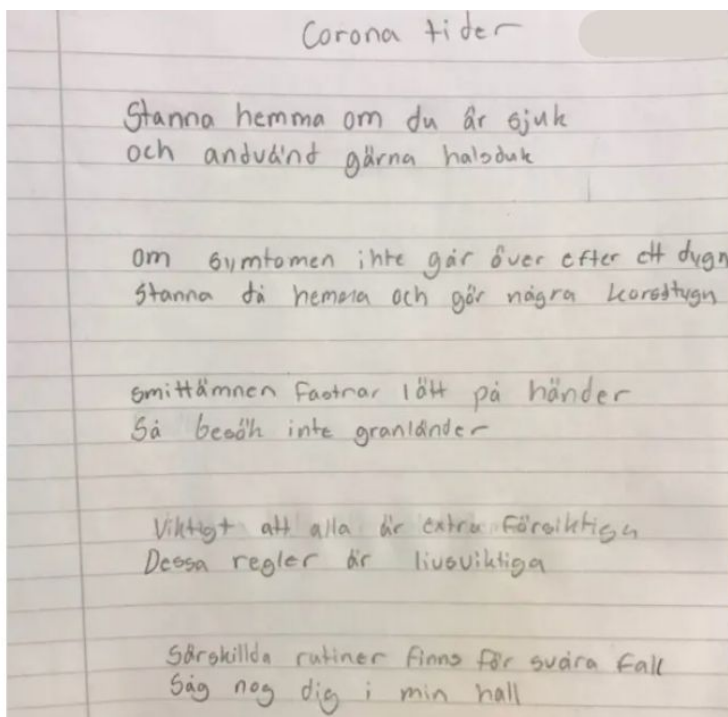 Corona tider
Stanna hemma om du är sjuk
och andvänd gärna halsduk
om symtomen inte går över efter ett dygn
Stanna då hemma och gör några korsstygn
smittämnen fastnar lätt på händer
Så besök inte granländer
Viktigt att alla är extra försiktiga
Dessa regler är livsviktiga
Särskillda rutiner finns för svåra fall
Såg nog dig i min hall